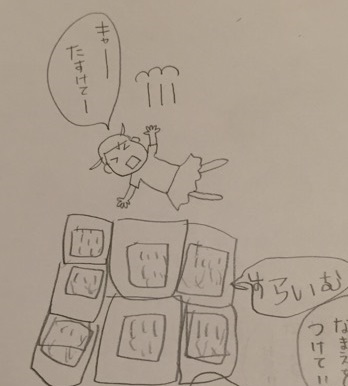 キャー
たすけてー
すらいむ
なまえを
つけて!!